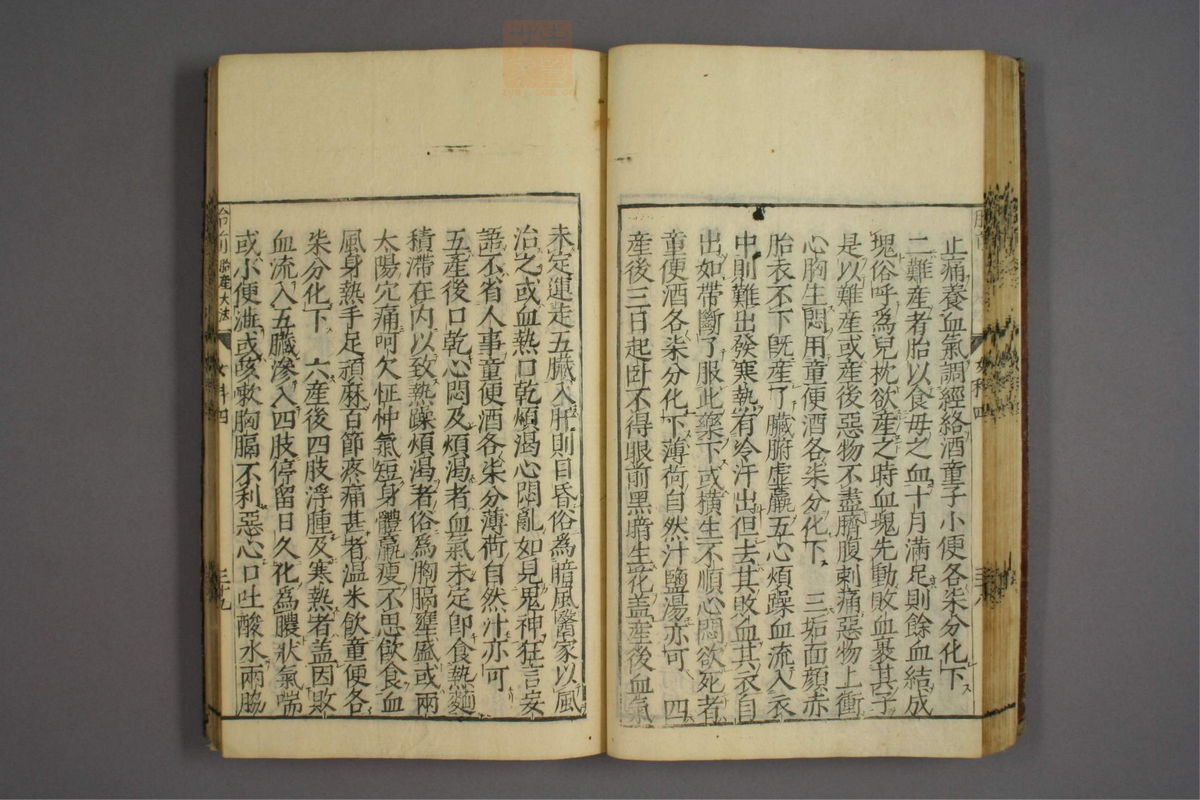 止痛養血氣調經絡酒童子小便各柒分化下
二難産者胎以食母之血十月滿足則餘血結成
塊俗呼爲兒枕欲産之時血塊先動敗血裹其子
是以難産或産後惡物不盡臍腹刺痛惡物上衝
心胸生悶用童便酒各柒分化下 三垢面顔赤
胎衣不下既産了臓腑虛羸五心煩躁血流入衣
中則難出發寒熱有冷汗出但去其敗血其衣自
出如帶斷了服此藥下或橫生不順心悶欲死者
童便酒各柒分化下薄荷自然汁鹽湯亦可 四
産後三日起卧不得眼前黑暗生花盖産後血氣
未定運走五臓入肝則目昏俗為暗風醫家以風
治之或血熱口乾煩渴心悶亂如見鬼神狂言妄
語不省人事童便酒各柒分薄荷自然汁亦可
五産後口乾心悶及煩渴者血氣未定即食熱麵
積滯在内以致熱躁煩渴者俗為胸膈壅盛或兩
太陽穴痛呵欠怔忡氣短身體羸瘦不思飲食血
風身熱手足頑麻百節疼痛甚者温米飲童便各
柒分化下 六産後四肢浮腫及寒熱者盖因敗
血流入五臓滲入四肢停留日久化為膿狀氣喘
或小便澁或咳嗽胸膈不利惡心口吐酸水兩脇
胎産大法
女科四
三十九